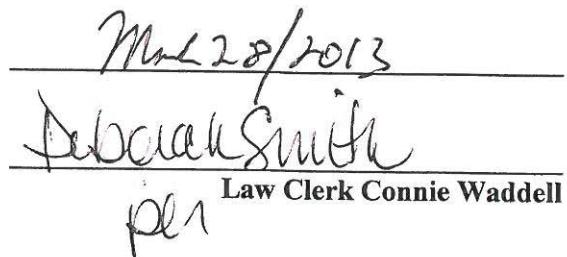 March 28/2013
Deborah Smith
Law Clerk Connie Waddell
per